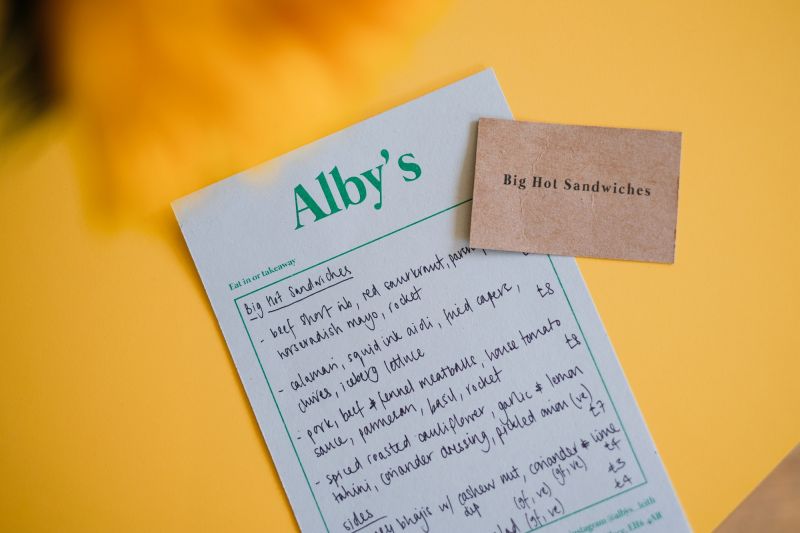 Alby's
Big Hot Sandwiches
Eat in or takeaway
Big Hot Sandwiches
- beef short rib, red saurkraut,
horseradish mayo, rocket
- calamari, squid ink aioli, fried capers, £8
chives, iceberg lettuce
- pork, beef & fennel meatballs, house tomato £8
sauce, parmesan, basil, rocket
- spiced roasted cauliflower, garlic & lemon
tahini, coriander dressing, pickled onion (ve) £7
sides
bhajis w/ cashew nut, coriander & lime £4
dip (gf, ve) (gf, ve) £3
(gf, ve) £4